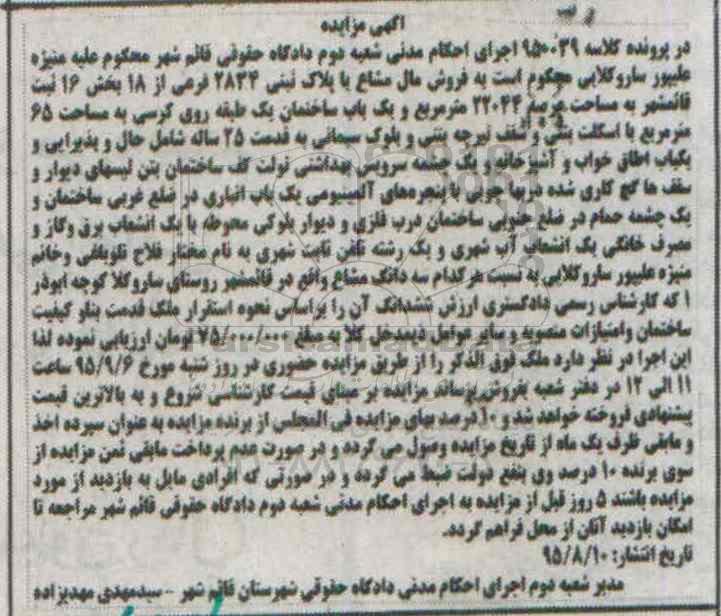 اگهی مزایده
در پرونده کلاسه ۹۵۰۰۳۹ اجرای احکام مدنی شعبه دوم دادگاه حقوقی قائم شهر محکوم علیه منیژه
علیپور ساروکلایی محکوم است به فروش مال مشاع با پلاک ثبتی ۲۸۳۴ فرعی از ۱۸ بخش ۱۶ ثبت
قائمشهر به مساحت عرصه ۲۲۰۴۴ مترمربع و یک باب ساختمان یک طبقه روی کرسی به مساحت ۶۵
مترمربع با اسکلت بتنی و سقف تیرچه بتنی و بلوک سیمانی به قدمت ۲۵ ساله شامل حال و پذیرایی و
یکباب اطاق خواب و آشپزخانه و یک چشمه سرویس بهداشتی تولت کف ساختمان بتن لیسهای دیوار و
سقف ها گچ کاری شده دربها چوبی با پنجره‌های آلمینیومی یک باب انباری در ضلع غربی ساختمان و
یک چشمه حمام در ضلع جنوبی ساختمان درب فلزی و دیوار بلوکی محوطه با یک انشعاب برق وگاز و
مصرف خانگی یک انشعاب آب شهری و یک رشته تلفن ثابت شهری به نام مختار فلاح قلوبافی وخانم
منیژه علیپور ساروکلایی به نسبت هرکدام سه دانگ مشاع واقع در قائمشهر روستای ساروکلا کوچه ابوذر
۱ که کارشناس رسمی دادگستری ارزش ششدانگ آن را براساس نحوه استقرار ملک قدمت بناو کیفیت
ساختمان وامتیازات منصوبه و سایر عوامل ذیمدخل کلا به مبلغ ۷۵/۰۰۰/۰۰۰ تومان ارزیابی نموده لذا
این اجرا در نظر دارد ملک فوق الذکر را از طریق مزایده حضوری در روز شنبه مورخ ۹۵/۹/۶ ساعت
۱۱ الی ۱۲ در دفتر شعبه بفروش برساند مزایده بر مبنای قیمت کارشناسی شروع و به بالاترین قیمت
پیشنهادی فروخته خواهد شد و ۱۰درصد بهای مزایده فی المجلس از برنده مزایده به عنوان سپرده اخذ
و مابقی ظرف یک ماه از تاریخ مزایده وصول می گردد و در صورت عدم پرداخت مابقی ثمن مزایده از
سوی برنده ۱۰ درصد وی بنفع دولت ضبط می گردد و در صورتی که افرادی مایل به بازدید از مورد
مزایده باشند ۵ روز قبل از مزایده به اجرای احکام مدنی شعبه دوم دادگاه حقوقی قائم شهر مراجعه تا
امکان بازدید آنان از محل فراهم گردد.
تاریخ انتشار: ۹۵/۸/۱۰
مدیر شعبه دوم اجرای احکام مدنی دادگاه حقوقی شهرستان قائم شهر - سیدمهدی مهدیزاده